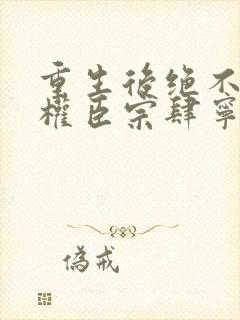 重生後绝不
權臣宗肆寧
偽戒